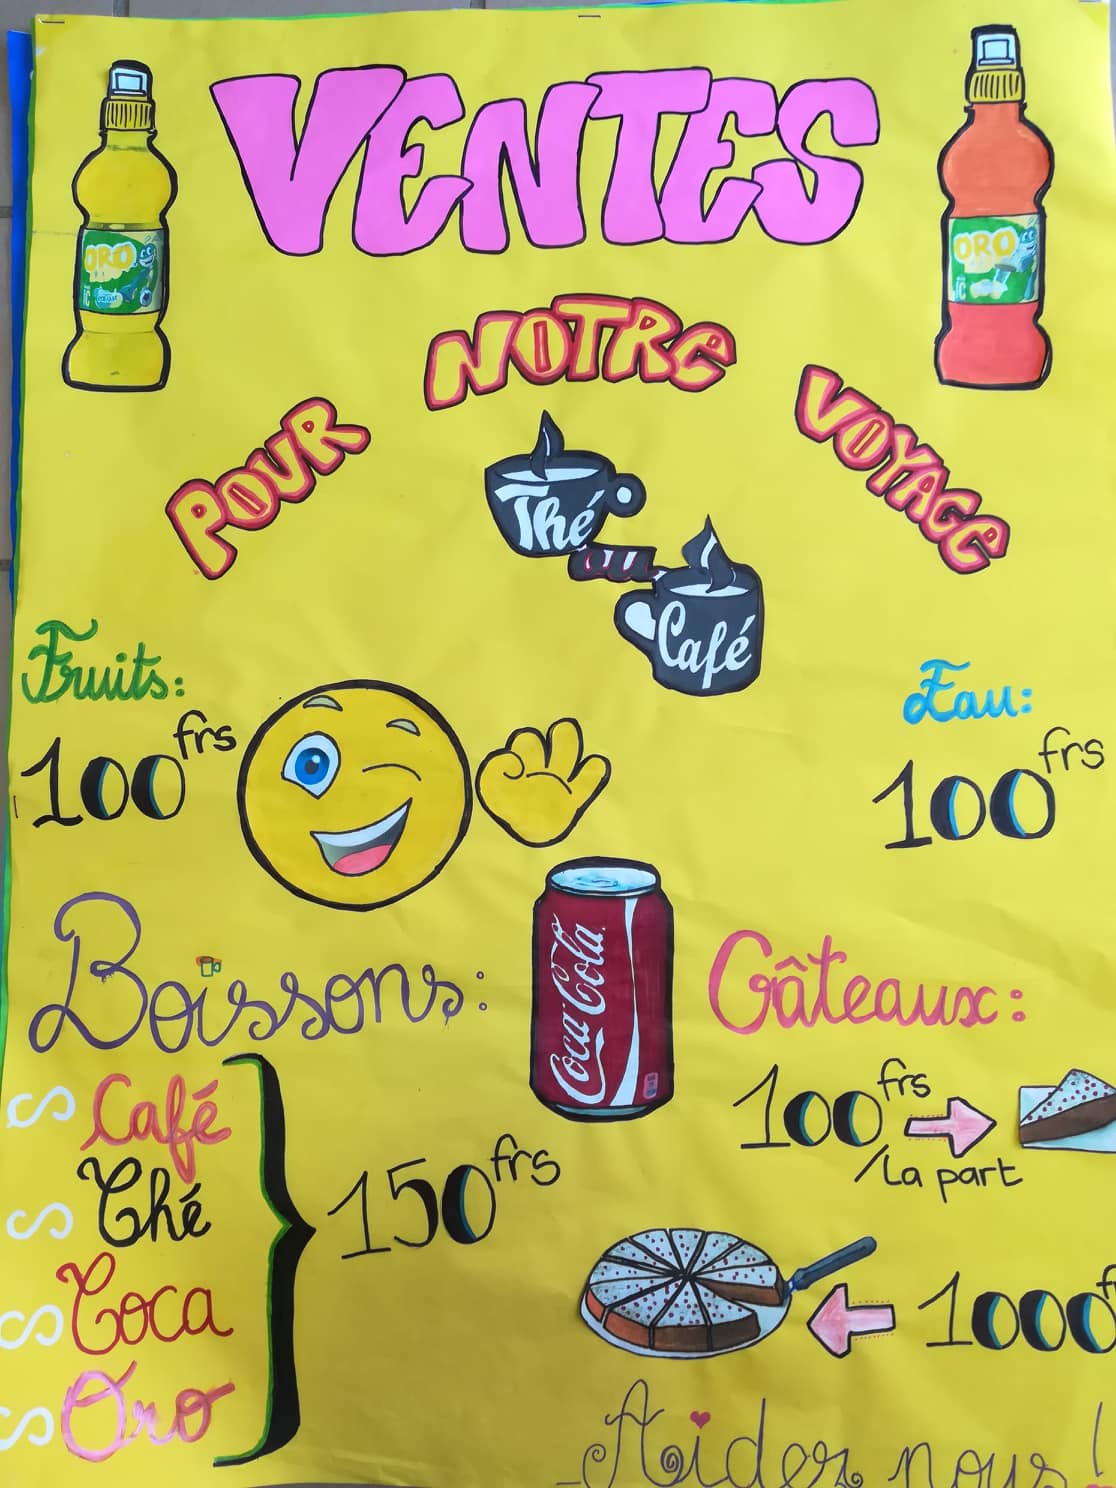 VENTES
ORO
ORO
POUR NOTRE VOYAGE
Thé
ou
Café
Fruits:
100 frs
Eau:
100 frs
Boissons:
Coca-Cola
Gâteaux:
Café
Thé
Coca
Oro
150 frs
100 frs
/La part
1000 f
Aidez nous!